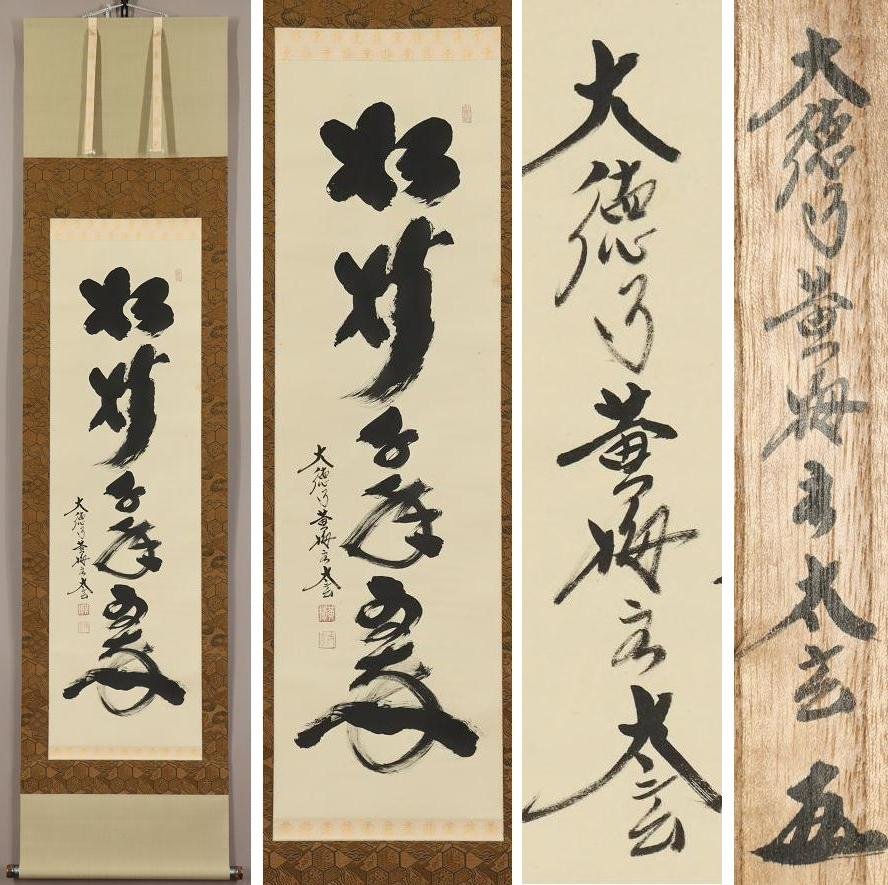 松樹千年翠
大徳寺黄梅太玄
松樹千年翠
大徳寺黄梅太玄
大徳寺黄梅太玄
大徳寺黄梅太玄